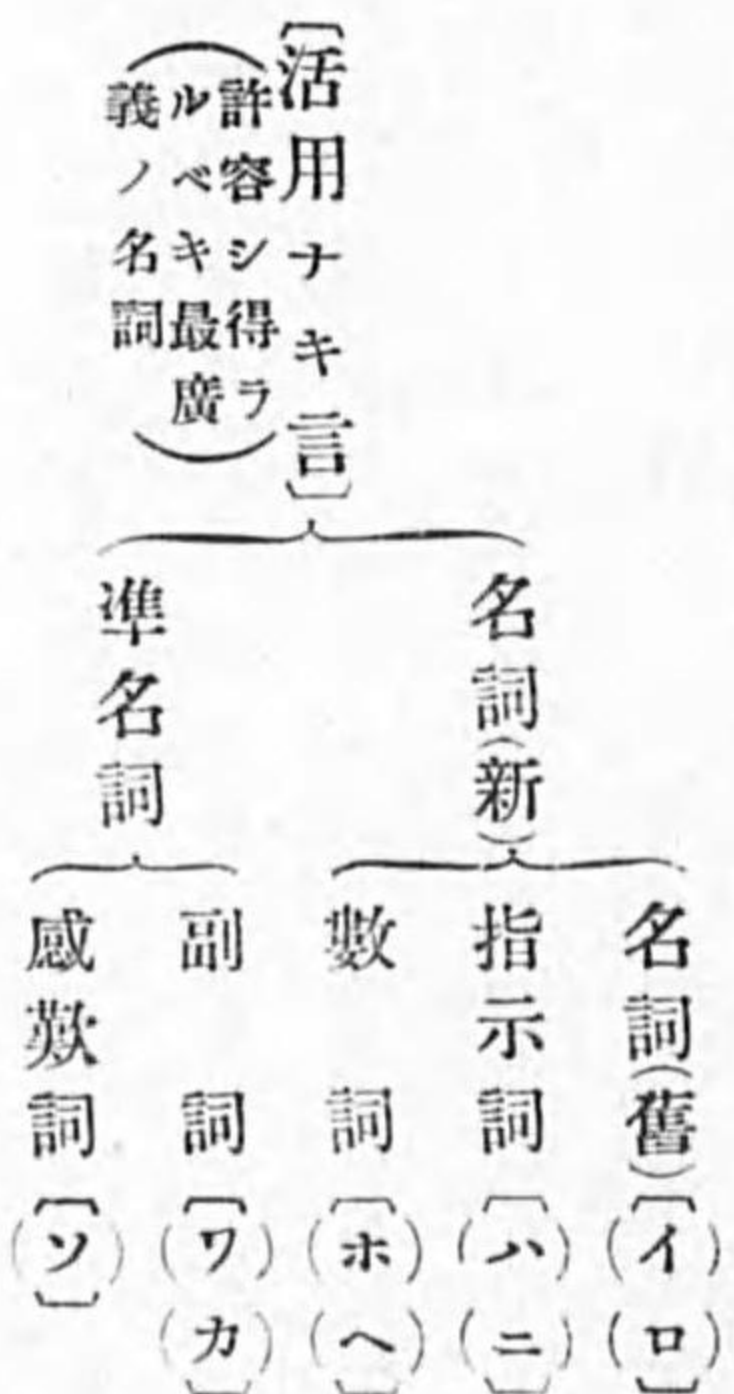 〔活用ナキ言〕
（許容シ得ラ
ルベキ最廣
義ノ名詞）
名詞（新）
名詞（舊）〔（イ）（ロ）〕
指示詞〔（ハ）（ニ）〕
數詞〔（ホ）（ヘ）〕
準名詞
副詞〔（ワ）（カ）〕
感歎詞〔（ソ）〕